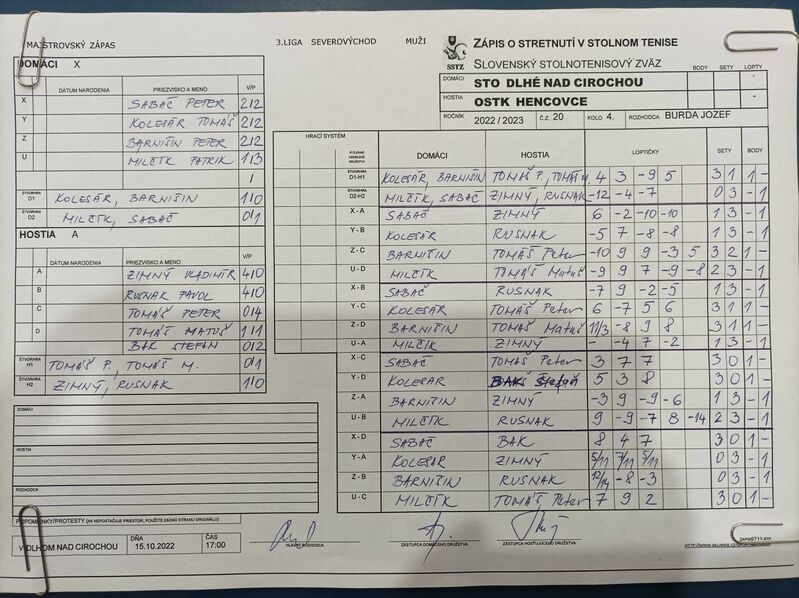 MAJSTROVSKÝ ZÁPAS
3.LIGA SEVEROVÝCHOD MUŽI
SSTZ
ZÁPIS O STRETNUTÍ V STOLNOM TENISE
SLOVENSKÝ STOLNOTENISOVÝ ZVÄZ
BODY SETY LOPTY
DOMÁCI STO DLHÉ NAD CIROCHOU -
HOSTIA OSTK HENCOVCE -
ROČNÍK 2022 / 2023 Č.Z. 20 KOLO 4. ROZHODCA BURDA JOZEF
DOMÁCI X
DÁTUM NARODENIA PRIEZVISKO A MENO V/P
X SABAČ PETER 2/2
Y KOLESÁR TOMÁŠ 2/2
Z BARNIŠIN PETER 2/2
U MILČÍK PATRIK 1/3
/
ŠTVORHRA D1 KOLESÁR, BARNIŠIN 1/0
ŠTVORHRA D2 MILČÍK, SABAČ 0/1
HOSTIA A
DÁTUM NARODENIA PRIEZVISKO A MENO V/P
A ZIMNÝ VLADIMÍR 4/0
B RUSNAK PAVOL 4/0
C TOMÁŠ PETER 0/4
D TOMÁŠ MATÚŠ 1/1
BAK STEFAN 0/2
ŠTVORHRA H1 TOMÁŠ P., TOMÁŠ M. 0/1
ŠTVORHRA H2 ZIMNÝ, RUSNAK 1/0
HRACÍ SYSTÉM
DOMÁCI HOSTIA LOPTIČKY SETY BODY
ŠTVORHRA D1-H1 KOLESÁR, BARNIŠIN TOMÁŠ P., TOMÁŠ M. 4 3 -9 5 3 1 1 -
ŠTVORHRA D2-H2 MILČÍK, SABAČ ZIMNÝ, RUSNAK -12 -4 -7 0 3 - 1
X - A SABAČ ZIMNÝ 6 -2 -10 -10 1 3 - 1
Y - B KOLESÁR RUSNAK -5 7 -8 -8 1 3 - 1
Z - C BARNIŠIN TOMÁŠ Peter -10 9 9 -3 5 3 2 1 -
U - D MILČÍK TOMÁŠ Matúš -9 9 7 -9 -8 2 3 - 1
X - B SABAČ RUSNAK -7 9 -2 -5 1 3 - 1
Y - C KOLESÁR TOMÁŠ Peter 6 -7 5 6 3 1 1 -
Z - D BARNIŠIN TOMÁŠ Matúš 11/3 -8 9 8 3 1 1 -
U - A MILČÍK ZIMNÝ - -4 7 -2 1 3 - 1
X - C SABAČ TOMÁŠ Peter 3 7 7 3 0 1 -
Y - D KOLESÁR BAK Štefan 5 3 8 3 0 1 -
Z - A BARNIŠIN ZIMNÝ -3 9 -9 -6 1 3 - 1
U - B MILČÍK RUSNAK 9 -9 -7 8 -14 2 3 - 1
X - D SABAČ BAK 8 4 7 3 0 1 -
Y - A KOLESÁR ZIMNÝ 5/11 7/11 5/11 0 3 - 1
Z - B BARNIŠIN RUSNAK 12/14 -8 -3 0 3 - 1
U - C MILČÍK TOMÁŠ Peter 7 9 2 3 0 1 -
DOMÁCI
HOSTIA
ROZHODCA
PRIPOMIENKY/PROTESTY (AK NEPOSTAČUJE PRIESTOR, POUŽITE ZADNÚ STRANU ORIGINÁLU)
V DLHOM NAD CIROCHOU DŇA 15.10.2022 ČAS 17:00
HLAVNÝ ROZHODCA
ZÁSTUPCA DOMÁCEHO DRUŽSTVA
ZÁSTUPCA HOSŤUJÚCEHO DRUŽSTVA